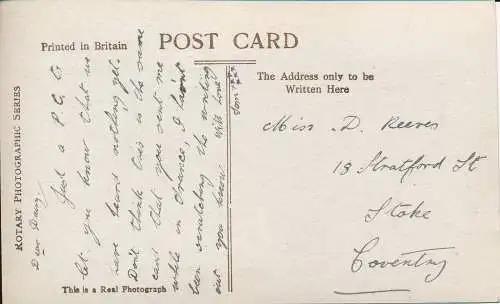 Printed in Britain
POST CARD
The Address only to be
Written Here
ROTARY PHOTOGRAPHIC SERIES
This is a Real Photograph
Dear Daisy
Just a P.C. to
let you know that we
have heard nothing yet.
Don't think this is the same
card that you sent me
while in France, I havnt
been scratching the writing
out you know. With Love
Tom xxx
xxx
Miss D. Reeves
13 Stratford St
Stoke
Coventry